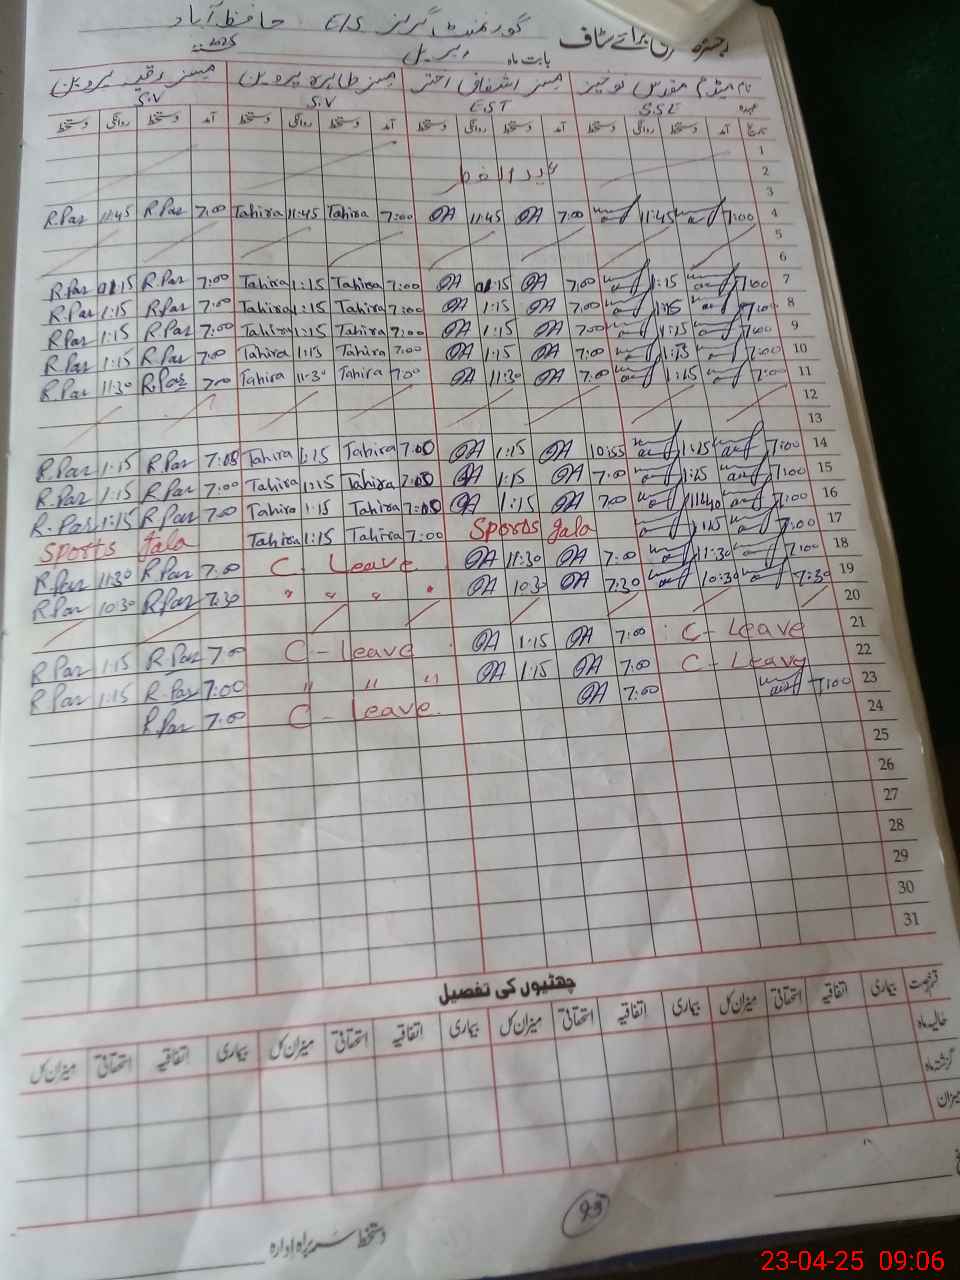 رجسٹر حاضری برائے سٹاف گورنمنٹ گرلز E/S حافظ آباد
بابت ماہ اپریل 2025
نام میڈم مقدس نوخیز مسز اشفاق اختر مسز طاہرہ پروین مسز رقیہ پروین
عہدہ S.S.E E.S.T S.V S.V
تاریخ آمد دستخط روانگی دستخط آمد دستخط روانگی دستخط آمد دستخط روانگی دستخط آمد دستخط روانگی دستخط
1
2 عید الفطر
3
R.Par 11:45 R.Par 7:00 Tahira 11:45 Tahira 7:00 OA 11:45 OA 7:00 11:45 7:00 4
5
6
R.Par 1:15 R.Par 7:00 Tahira 1:15 Tahira 7:00 OA 1:15 OA 7:00 1:15 7:00 7
R.Par 1:15 R.Par 7:00 Tahira 1:15 Tahira 7:00 OA 1:15 OA 7:00 1:15 7:00 8
R.Par 1:15 R.Par 7:00 Tahira 1:15 Tahira 7:00 OA 1:15 OA 7:00 1:15 7:00 9
R.Par 1:15 R.Par 7:00 Tahira 1:15 Tahira 7:00 OA 1:15 OA 7:00 1:15 7:00 10
R.Par 11:30 R.Par 7:00 Tahira 11:30 Tahira 7:00 OA 11:30 OA 7:00 1:15 7:00 11
12
13
R.Par 1:15 R.Par 7:00 Tahira 1:15 Tahira 7:00 OA 1:15 OA 10:55 1:15 7:00 14
R.Par 1:15 R.Par 7:00 Tahira 1:15 Tahira 7:00 OA 1:15 OA 7:00 1:15 7:00 15
R.Par 1:15 R.Par 7:00 Tahira 1:15 Tahira 7:00 OA 1:15 OA 7:00 11:40 7:00 16
Sports Gala Tahira 1:15 Tahira 7:00 Sports Gala 1:15 7:00 17
R.Par 11:30 R.Par 7:00 C. Leave OA 11:30 OA 7:00 11:30 7:00 18
R.Par 10:30 R.Par 7:30 " " " " OA 10:30 OA 7:30 10:30 7:30 19
20
R.Par 1:15 R.Par 7:00 C - Leave OA 1:15 OA 7:00 C - Leave 21
R.Par 1:15 R.Par 7:00 " " " OA 1:15 OA 7:00 C - Leave 22
R.Par 7:00 C - Leave OA 7:00 7:00 23
24
25
26
27
28
29
30
31
چھٹیوں کی تفصیل
قسم رخصت بیماری اتفاقیہ استحقاقی میزان کل بیماری اتفاقیہ استحقاقی میزان کل بیماری اتفاقیہ استحقاقی میزان کل بیماری اتفاقیہ استحقاقی میزان کل
حالیہ ماہ
گزشتہ ماہ
میزان
دستخط سربراہ ادارہ
93
23-04-25 09:06